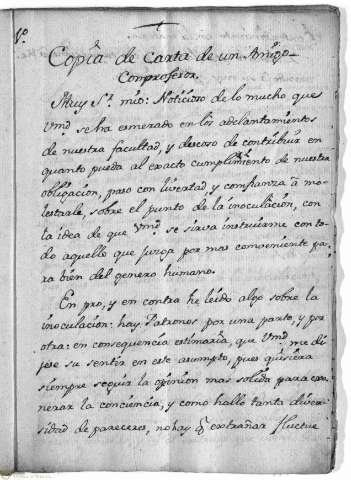 1º
Copia de Carta de un Amigo
Comprofesor.
Muy Sr. mio: Noticioso de lo mucho que
Vmd se ha esmerado en los adelantamientos
de nuestra facultad, y deseoso de contribuir en
quanto pueda al exacto cumplimiento de nuestra
obligacion, paso con livertad y confianza â mo-
lestrale, sobre el punto de la inoculacion, con
la idea de que Vmd se sirva instruirme con to-
do aquello que juzga por mas conveniente pa-
ra bien del genero humano.
En pro, y en contra he leido algo sobre la
inoculacion: hay Patronos por una parte, y por
otra: en consequencia estimaria, que Vmd me di
jese su sentir en este asumpto, pues quisiera
siempre seguir la opinion mas solida para exo-
nerar la conciencia, y como hallo tanta diver-
sidad de pareceres, no hay q̃ extrañar fluctue